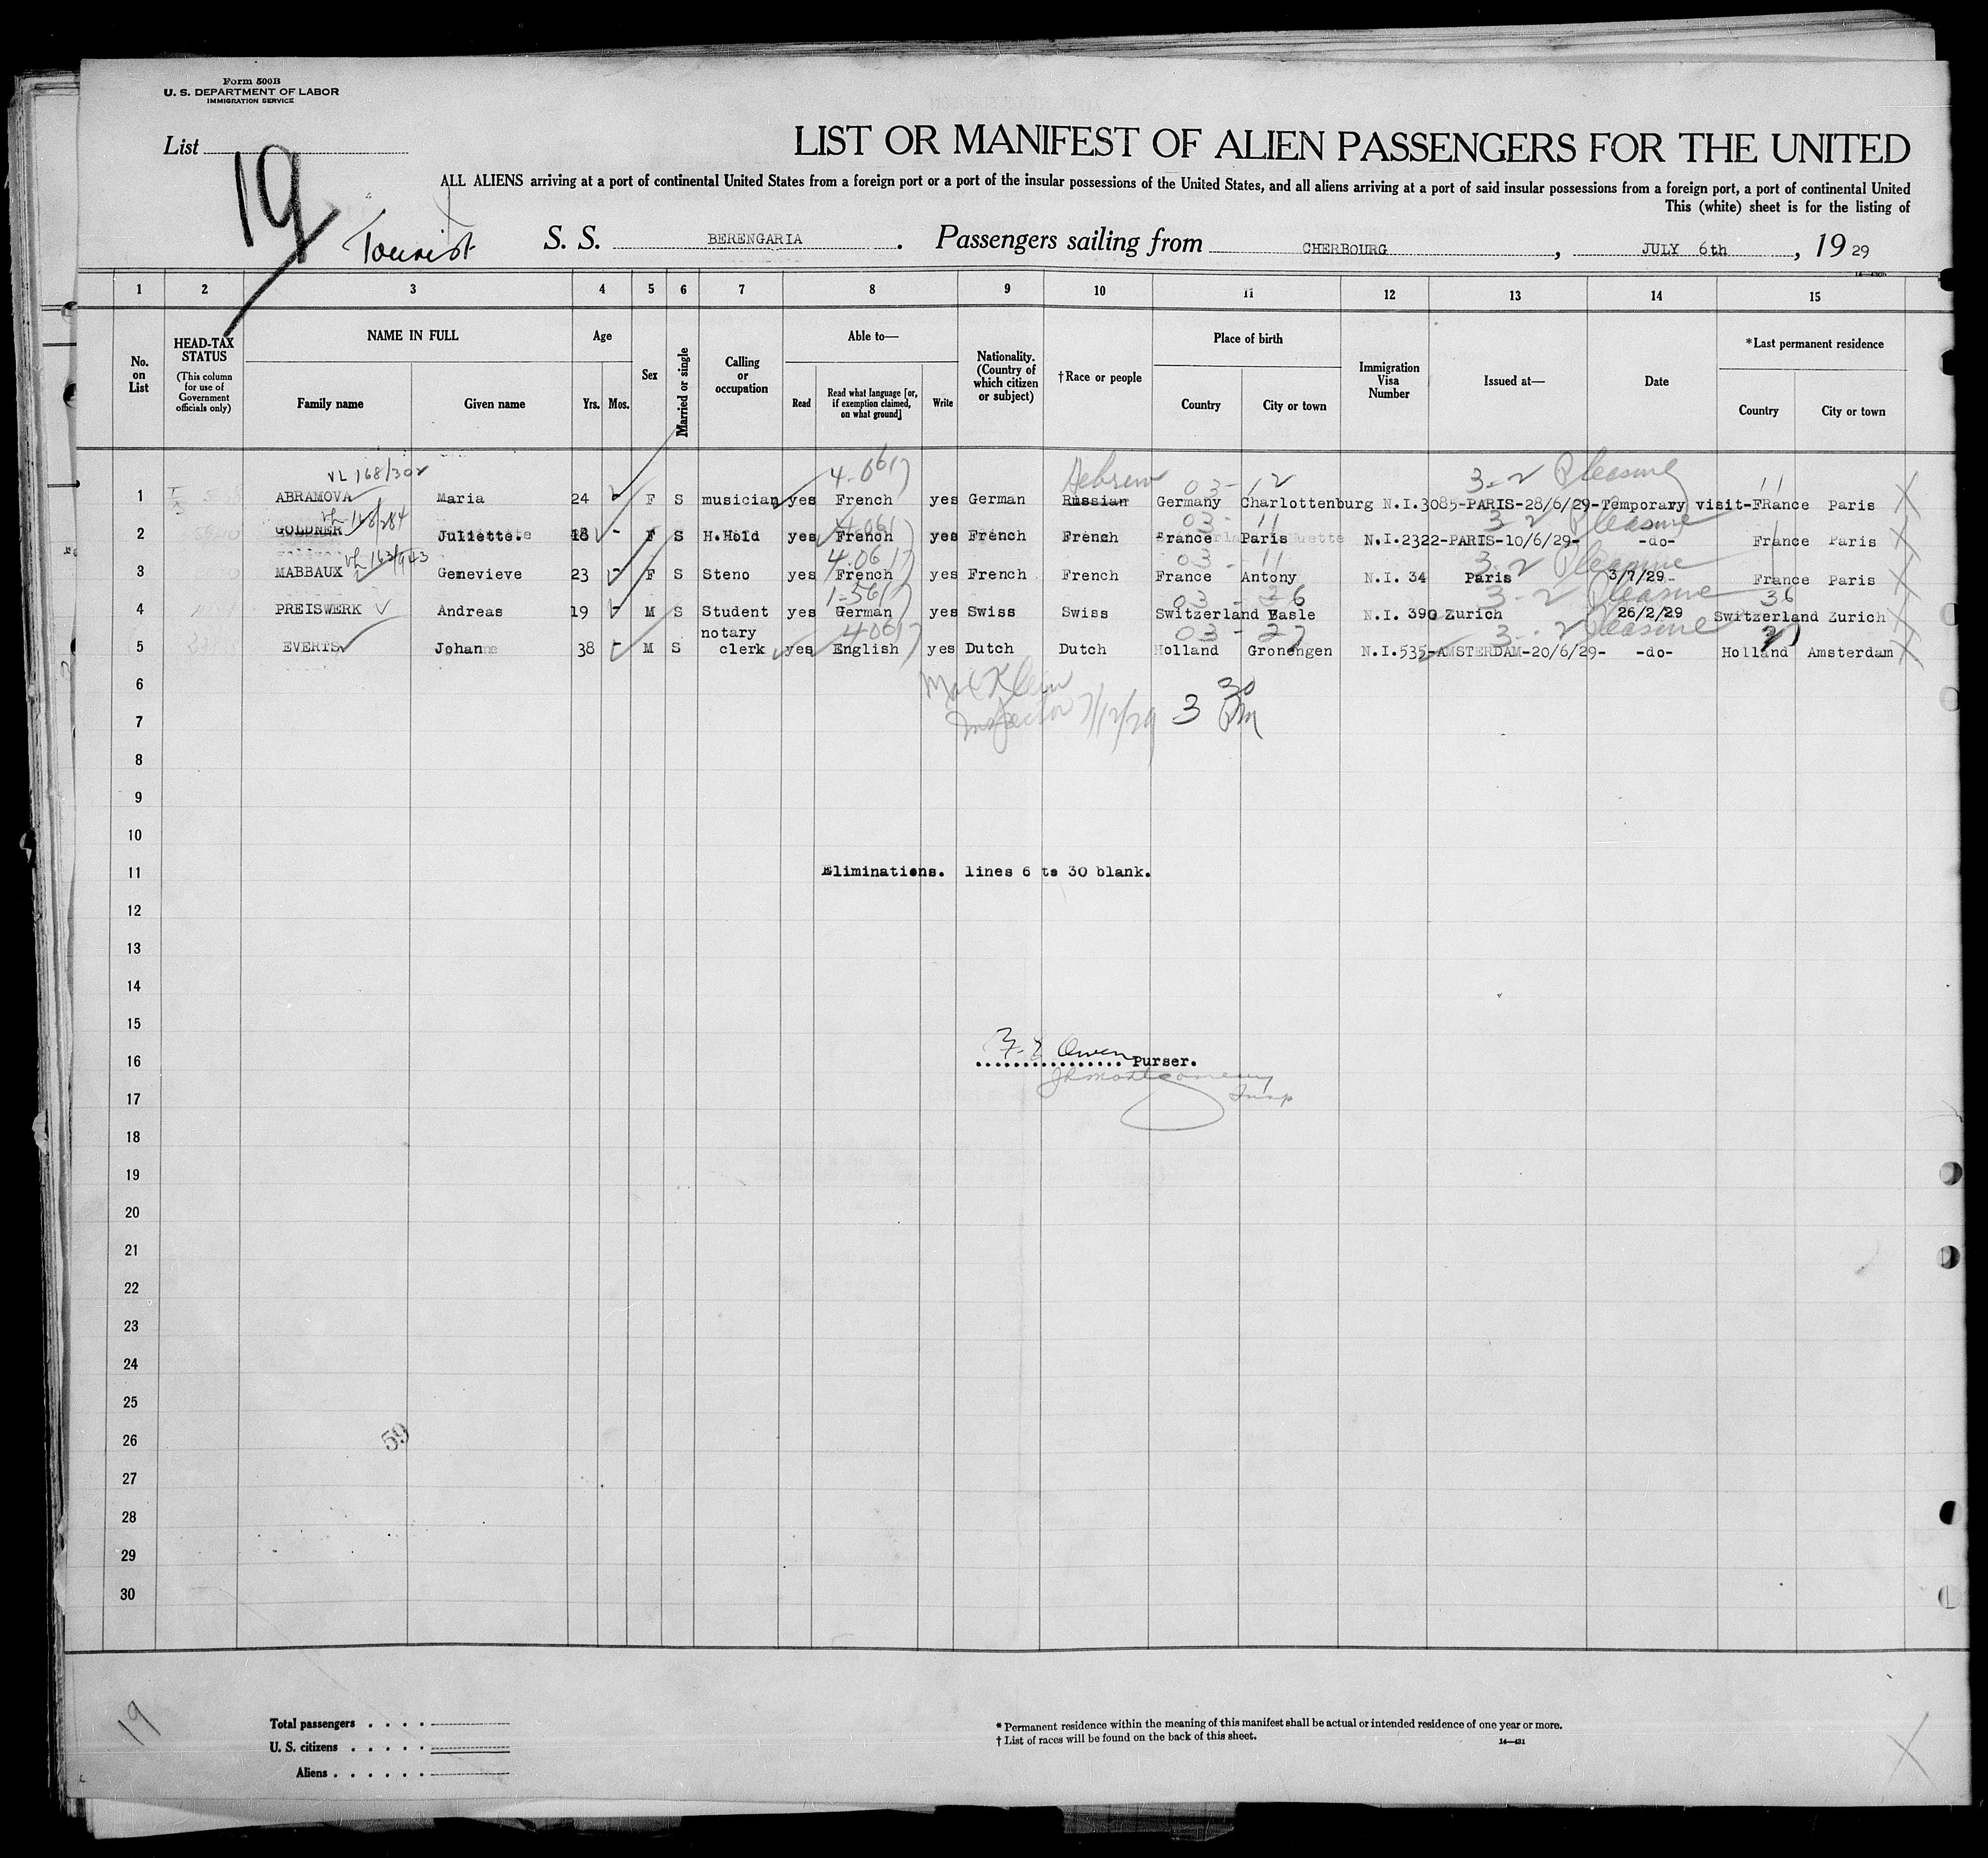 Form 500B
U. S. DEPARTMENT OF LABOR
IMMIGRATION SERVICE
List
19
LIST OR MANIFEST OF ALIEN PASSENGERS FOR THE UNITED
ALL ALIENS arriving at a port of continental United States from a foreign port or a port of the insular possessions of the United States, and all aliens arriving at a port of said insular possessions from a foreign port, a port of continental United
This (white) sheet is for the listing of
Tourist S. S. BERENGARIA. Passengers sailing from CHERBOURG, JULY 6th, 1929
1 2 3 4 5 6 7 8 9 10 11 12 13 14 15
No. on List
HEAD-TAX STATUS (This column for use of Government officials only)
NAME IN FULL
Family name Given name
Age
Yrs. Mos.
Sex
Married or single
Calling or occupation
Able to—
Read Read what language [or, if exemption claimed, on what ground] Write
Nationality. (Country of which citizen or subject)
†Race or people
Place of birth
Country City or town
Immigration Visa Number
Issued at—
Date
*Last permanent residence
Country City or town
VL 168/302 4-0617 Hebrew 03-12 3-2 Pleasure 11
1 ABRAMOVA Maria 24 - F S musician yes French yes German Russian Germany Charlottenburg N.I.3085-PARIS-28/6/29-Temporary visit-FRance Paris X
4-0617 03-11 3-2 Pleasure 11
2 GOLDNER Juliette. 18 - F S H.Hold yes French yes French French France Paris N.I.2322-PARIS-10/6/29- -do- France Paris X
4-0617 03-11 3-2 Pleasure
3 MABBAUX Genevieve 23 - F S Steno yes French yes French French France Antony N.I. 34 Paris 3/7/29- France Paris X
1-5617 03-36 3-2 Pleasure 36
4 PREISWERK Andreas 19 - M S Student yes German yes Swiss Swiss Switzerland Basle N.I. 390 Zurich 26/2/29 Switzerland Zurich X
4-0617 03-27 3-2 Pleasure
5 EVERTS Johan 38 - M S notary clerk yes English yes Dutch Dutch Holland Gronengen N.I.535-AMSTERDAM-20/6/29- -do- Holland Amsterdam X
6
Max Klein
Inspector 7/12/29 3 30 PM
7
8
9
10
11 Eliminations. lines 6 to 30 blank.
12
13
14
15
16 F. E. Owen Purser.
JR Montgomery
Insp
17
18
19
20
21
22
23
24
25
26
59
27
28
29
30
19
Total passengers . . . .
U. S. citizens . . . . .
Aliens . . . . . .
* Permanent residence within the meaning of this manifest shall be actual or intended residence of one year or more.
† List of races will be found on the back of this sheet.
14—431
X